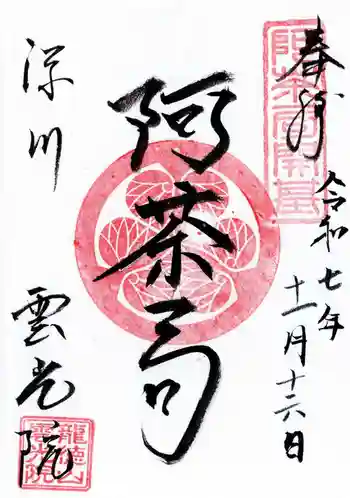 奉拝
令和七年
十一月十六日
阿茶局開基
阿茶局
深川
雲光院
龍徳山
雲光院